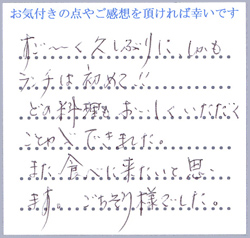 お気付きの点やご感想を頂ければ幸いです
すご〜く久しぶりに、しかも
ランチは初めて!!
どの料理もおいしくいただく
ことができました。
また食べに来たいと思い
ます。ごちそう様でした。